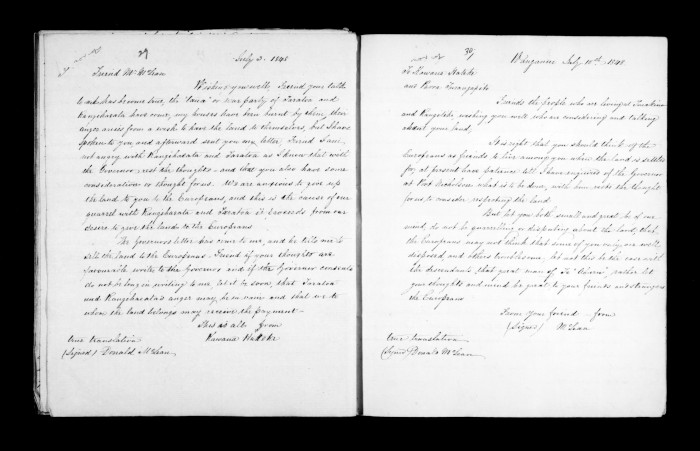 29
July 3. 1848
Friend Mr McLean
Wishing you well, Friend your talk
to us has become true, the "taua" or war party of Taratoa and
Rangiharata have come, my houses have been burnt by them, their
anger arises from a wish to have the land to themselves, but I have
spoken to you and afterward sent you my letter, Friend I am
not angry with Rangiharata and Taratoa as I know that with
the Governor rest the thoughts - and that you also have some
consideration or thought for us. We are anxious to give up
the land to you to the Europeans, and this is the cause of our
quarrel with Rangiharata and Taratoa it proceeds from our
desire to give the lands to the Europeans
The Governors letter has come to me, and he tells me to
sell the land to the Europeans. Friend if your thoughts are
favourable write to the Governor and if the Governor consents
do not be long in writing to me, let it be soon, that Taratoa
and Rangiharata's anger may be in vain and that we to
whom the land belongs may receive the payment
This is all from
Kawana Hakeke
true translation
(Signed) Donald McLean
30
Wanganui July 10th 1848
To Kawana Hakeke
and
I and the people who are living at
and Rangitiki wishing you well who are considering and talking
about your land,
It is right that you should think of the
Europeans as friends to live among you when the land is settled
for, at present have patience till I have enquired of the Governor
at Port Nicholson what is to be done, with him rests the thought
for us to consider respecting the land.
But let you both small and great be of one
mind, do not be quarrelling or disputing about the land, that
the Europeans may not think that some of you only are well
disposed and others troublesome, let not this be the case with
the descendants of that great man of rather let
your thoughts and mind be great to your friends and strangers
the Europeans
From your friend from
(Signed) McLean
true translation
(Signed) Donald McLean